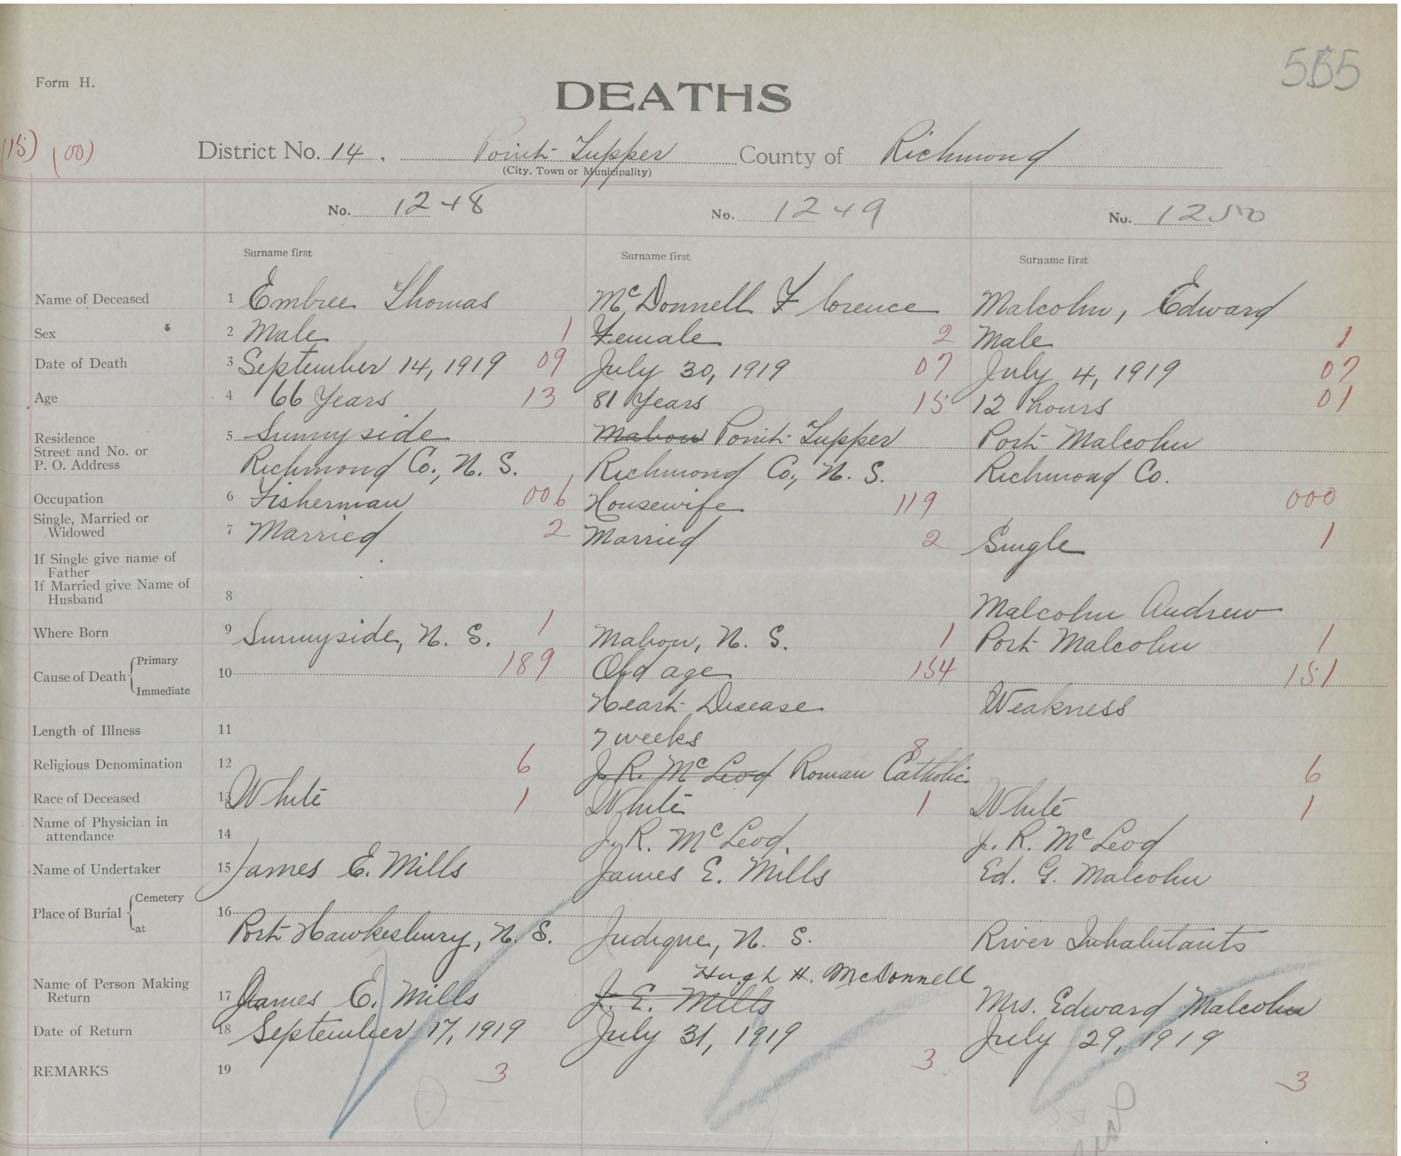 555
Form H.
DEATHS
(15) (00)
District No. 14. Point Tupper County of Richmond
(City, Town or Municipality)
No. 1248 No. 1249 No. 1250
Surname first Surname first Surname first
Name of Deceased 1 Embree Thomas McDonnell Florence Malcolm, Edward
Sex 2 Male 1 Female 2 Male 1
Date of Death 3 September 14, 1919 09 July 30, 1919 07 July 4, 1919 07
Age 4 66 Years 13 81 Years 15 12 hours 01
Residence 5 Sunnyside Mabou Point Tupper Port Malcolm
Street and No. or
P. O. Address Richmond Co., N. S. Richmond Co., N. S. Richmond Co.
Occupation 6 Fisherman 006 Housewife 119 000
Single, Married or
Widowed 7 Married 2 Married 2 Single 1
If Single give name of
Father
If Married give Name of
Husband 8 Malcolm Andrew
Where Born 9 Sunnyside, N. S. 1 Mabou, N. S. 1 Port Malcolm 1
Cause of Death Primary 10 189 Old age 154 151
Immediate Heart Disease Weakness
Length of Illness 11 7 weeks
Religious Denomination 12 6 J. R. McLeod Roman Catholic 8 6
Race of Deceased 13 White 1 White 1 White 1
Name of Physician in
attendance 14 J. R. McLeod. J. R. McLeod
Name of Undertaker 15 James E. Mills James E. Mills Ed. G. Malcolm
Place of Burial Cemetery 16
at Port Hawkesbury, N. S. Judique, N. S. River Inhabitants
Hugh H. McDonnell
Name of Person Making
Return 17 James E. Mills J. E. Mills Mrs. Edward Malcolm
Date of Return 18 September 17, 1919 July 31, 1919 July 29, 1919
REMARKS 19 3 3 3